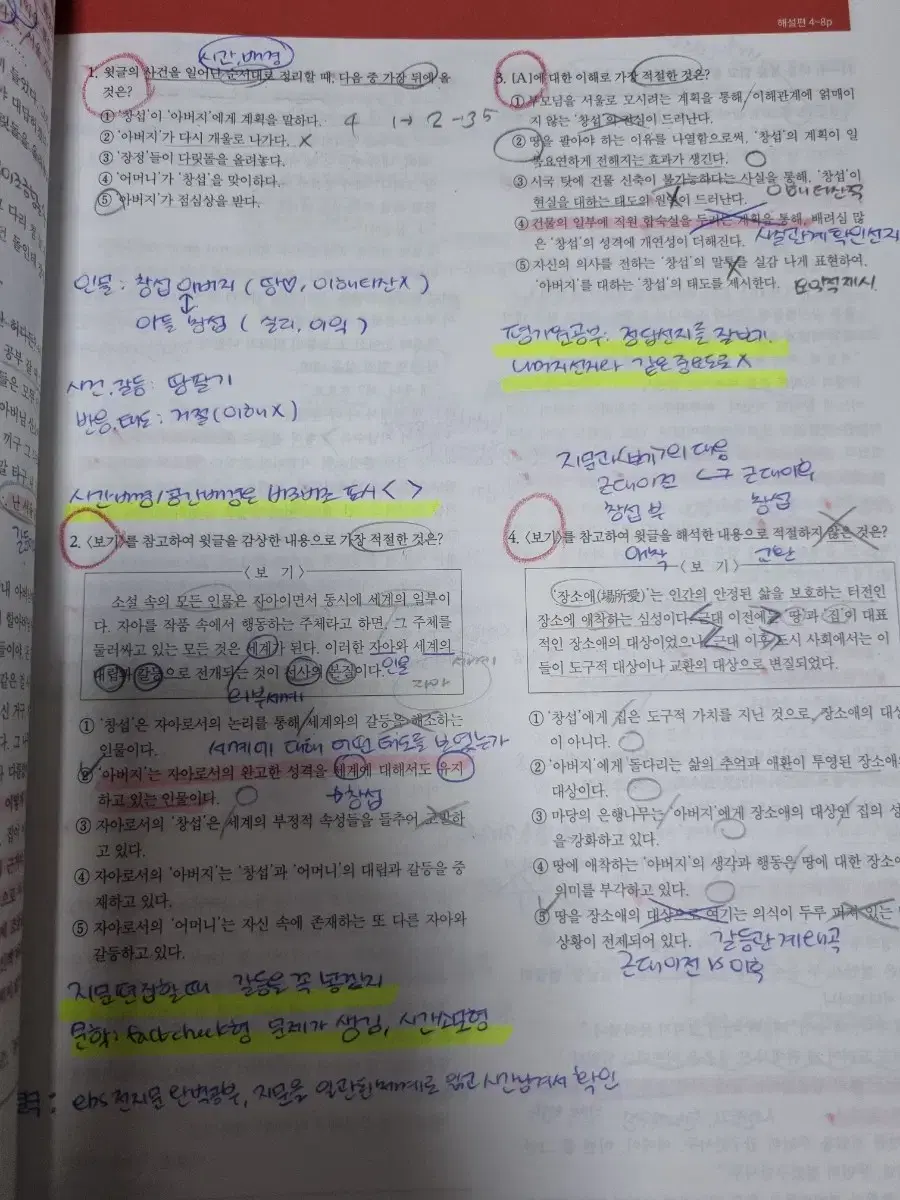 해설편 4~8p
시간, 배경
1. 윗글의 사건을 일어난 순서대로 정리할 때, 다음 중 가장 뒤에 올
것은?
① '창섭'이 '아버지'에게 계획을 말하다.
4 1→2-35
② '아버지'가 다시 개울로 나가다. ×
③ '장정'들이 다릿돌을 올려놓다.
④ '어머니'가 '창섭'을 맞이하다.
⑤ '아버지'가 점심상을 받다.
인물: 창섭 아버지 ( 땅♡, 이해타산× )
↕
아들 창섭 ( 실리, 이익 )
사건, 갈등: 땅팔기
반응, 태도: 거절(이해×)
시간배경/공간배경은 표시 < >
2. <보기>를 참고하여 윗글을 감상한 내용으로 가장 적절한 것은?
<보 기>
소설 속의 모든 인물은 자아이면서 동시에 세계의 일부이
다. 자아를 작품 속에서 행동하는 주체라고 하면, 그 주체를
둘러싸고 있는 모든 것은 세계가 된다. 이러한 자아와 세계의
대립과 갈등으로 전개되는 것이 서사의 본질이다.
인물
자아
외부세계
① '창섭'은 자아로서의 논리를 통해 세계와의 갈등을 해소하는
인물이다.
세계에 대해 어떤 태도를 보였는가
② '아버지'는 자아로서의 완고한 성격을 세계에 대해서도 유지
하고 있는 인물이다.
창섭
③ 자아로서의 '창섭'은 세계의 부정적 속성들을 들추어 고발하
고 있다.
④ 자아로서의 '아버지'는 '창섭'과 '어머니'의 대립과 갈등을 중
재하고 있다.
⑤ 자아로서의 '어머니'는 자신 속에 존재하는 또 다른 자아와
갈등하고 있다.
지문편집할때 갈등을 꼭
문학: fact check형 문제가 생김, 시간소모형
ebs 전지문 완벽공부, 지문을 일관된체계로 읽고 시간남겨서 확인
3. [A]에 대한 이해로 가장 적절한 것은?
① 부모님을 서울로 모시려는 계획을 통해, 이해관계에 얽매이
지 않는 '창섭'의 진심이 드러난다.
② 땅을 팔아야 하는 이유를 나열함으로써, '창섭'의 계획이 일
목요연하게 전해지는 효과가 생긴다.
③ 시국 탓에 건물 신축이 불가능하다는 사실을 통해, '창섭'이
현실을 대하는 태도의 원인이 드러난다.
이해타산적
④ 건물의 일부에 직원 합숙실을 두려는 계획을 통해, 배려심 많
은 '창섭'의 성격에 개연성이 더해진다.
사실관계확인선지
⑤ 자신의 의사를 전하는 '창섭'의 말투를 실감 나게 표현하여,
'아버지'를 대하는 '창섭'의 태도를 제시한다.
요약적제시
평가원공부: 정답선지를 잘보기.
나머지선지와 같은 중요도로 ×
지문과 <보기>의 대응
근대이전 근대이후
창섭 부 창섭
4. <보기>를 참고하여 윗글을 해석한 내용으로 적절하지 않은 것은?
애착 교환
<보 기>
'장소애(場所愛)'는 인간의 안정된 삶을 보호하는 터전인
장소에 애착하는 심성이다. 근대 이전에는 '땅'과 '집'이 대표
적인 장소애의 대상이었으나 근대 이후 도시 사회에서는 이
들이 도구적 대상이나 교환의 대상으로 변질되었다.
① '창섭'에게 집은 도구적 가치를 지닌 것으로, 장소애의 대상
이 아니다.
② '아버지'에게 돌다리는 삶의 추억과 애환이 투영된 장소애의
대상이다.
③ 마당의 은행나무는 '아버지'에게 장소애의 대상인 집의 성
을 강화하고 있다.
④ 땅에 애착하는 '아버지'의 생각과 행동은 땅에 대한 장소애
의미를 부각하고 있다.
⑤ 땅을 장소애의 대상으로 여기는 의식이 두루 퍼져 있는
상황이 전제되어 있다.
갈등관계왜곡
근대이전 vs 이후